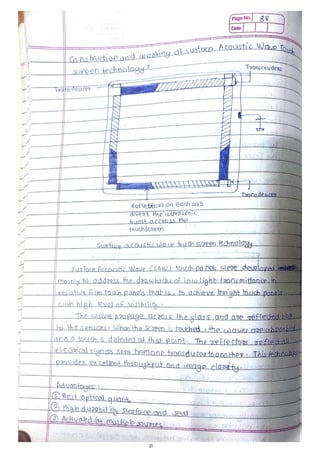 Page No. 88
Date
Construction and working of surface Acoustic Wave Touch
screen technology?
Transducers
Transducers
Reflectors on each axis
divert the ultrasonic
burst across the
touchscreen
Surface acoustic wave touch screen technology
Surface Accoustic Wave (SAW) touch panels were developed
mainly to address the drawbacks of low light transmittance in
resistive film touch panels that is, to achieve bright touch panels
with high level of visibility.
The wave propuge across the glass and are reflected back
to the sensors. When the screen is touched, the waves are absorbed
and a touch is detected at that point. The reflectors reflect all
electrical signals sent from one transducer to another. This technology
provides excellent throughput and image clarity.
Advantages:
① Best optical quality
② High durability surface and seal
③ Activated by multiple sources
21